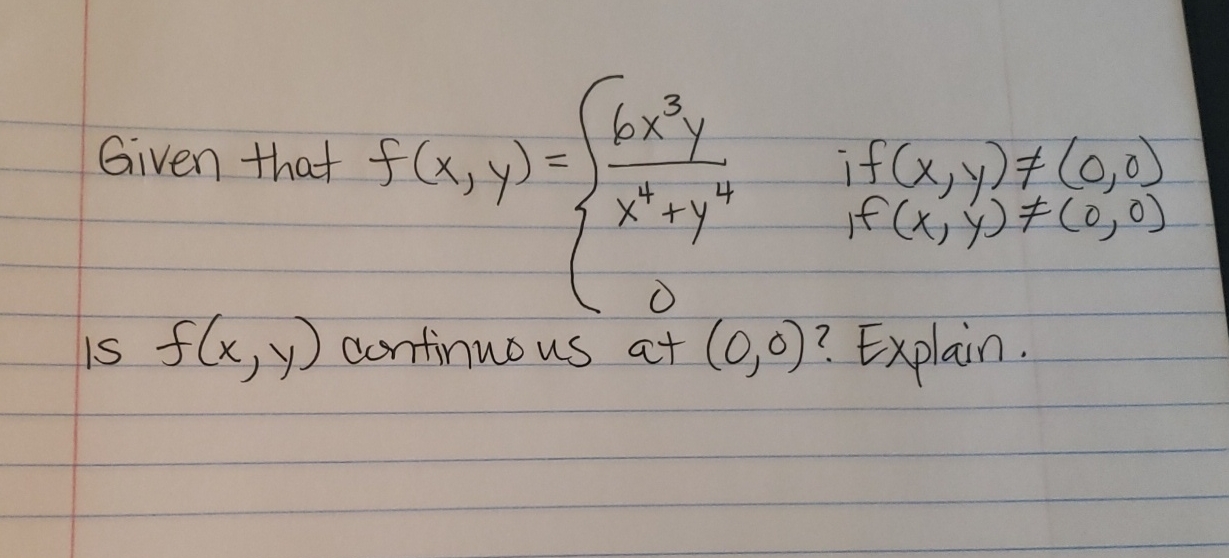 Given that f(x, y) = { 6x³y / x⁴ + y⁴ if (x, y) ≠ (0, 0)
if (x, y) ≠ (0, 0)
0
is f(x, y) continuous at (0, 0)? Explain.